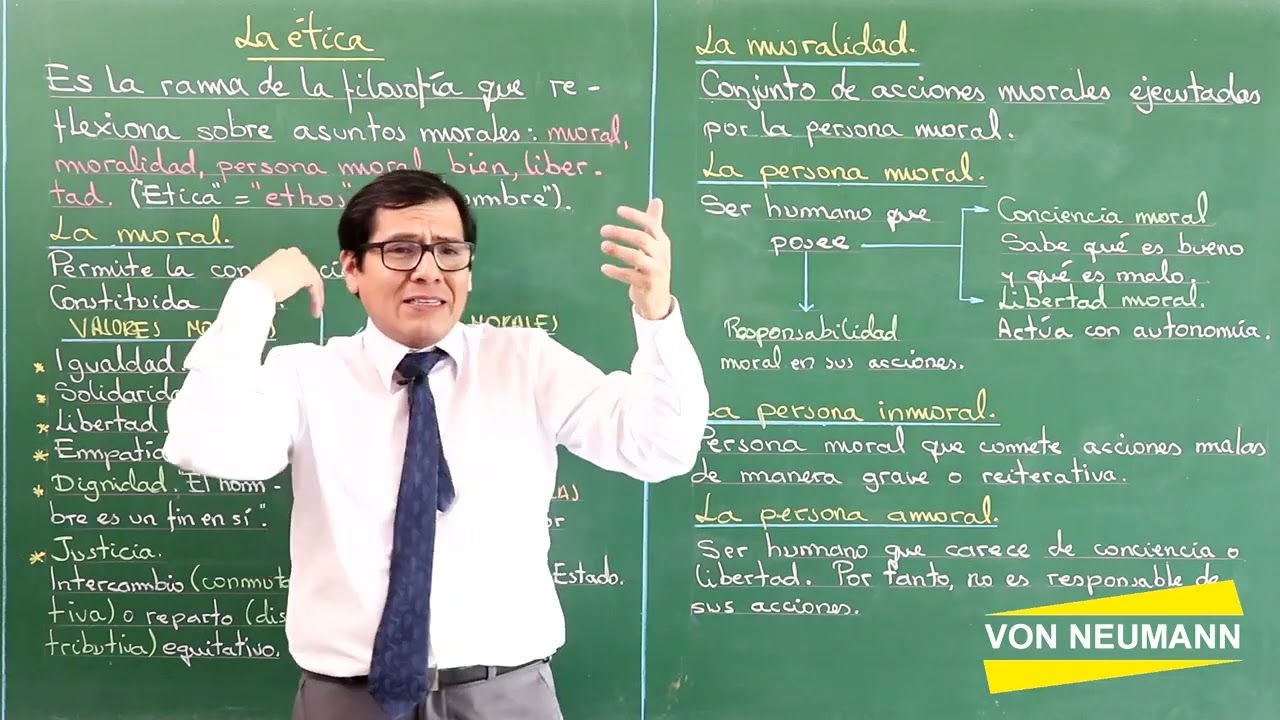 La ética
Es la rama de la filosofía que re-
flexiona sobre asuntos morales: moral,
moralidad, persona moral, bien, liber-
tad. ("Etica" = "ethos"
La moral.
Permite la
Constituida
VALORES
MORALES
* Igualdad.
* Solidarid
* Libertad.
* Empatía
* Dignidad. "El hom-
bre es un fin en sí".
* Justicia.
Intercambio (conmuta
Estado.
tiva) o reparto (dis
tributiva) equitativo.
La moralidad.
Conjunto de acciones morales ejecutadas
por la persona moral.
La persona moral.
Ser humano que
posee
Conciencia moral
Sabe qué es bueno
y qué es malo.
Libertad moral.
Actúa con autonomía.
Responsabilidad
moral en sus acciones.
La persona inmoral.
Persona moral que comete acciones malas
de manera grave o reiterativa.
La persona amoral.
Ser humano que carece de conciencia o
libertad. Por tanto, no es responsable de
sus acciones.
VON NEUMANN